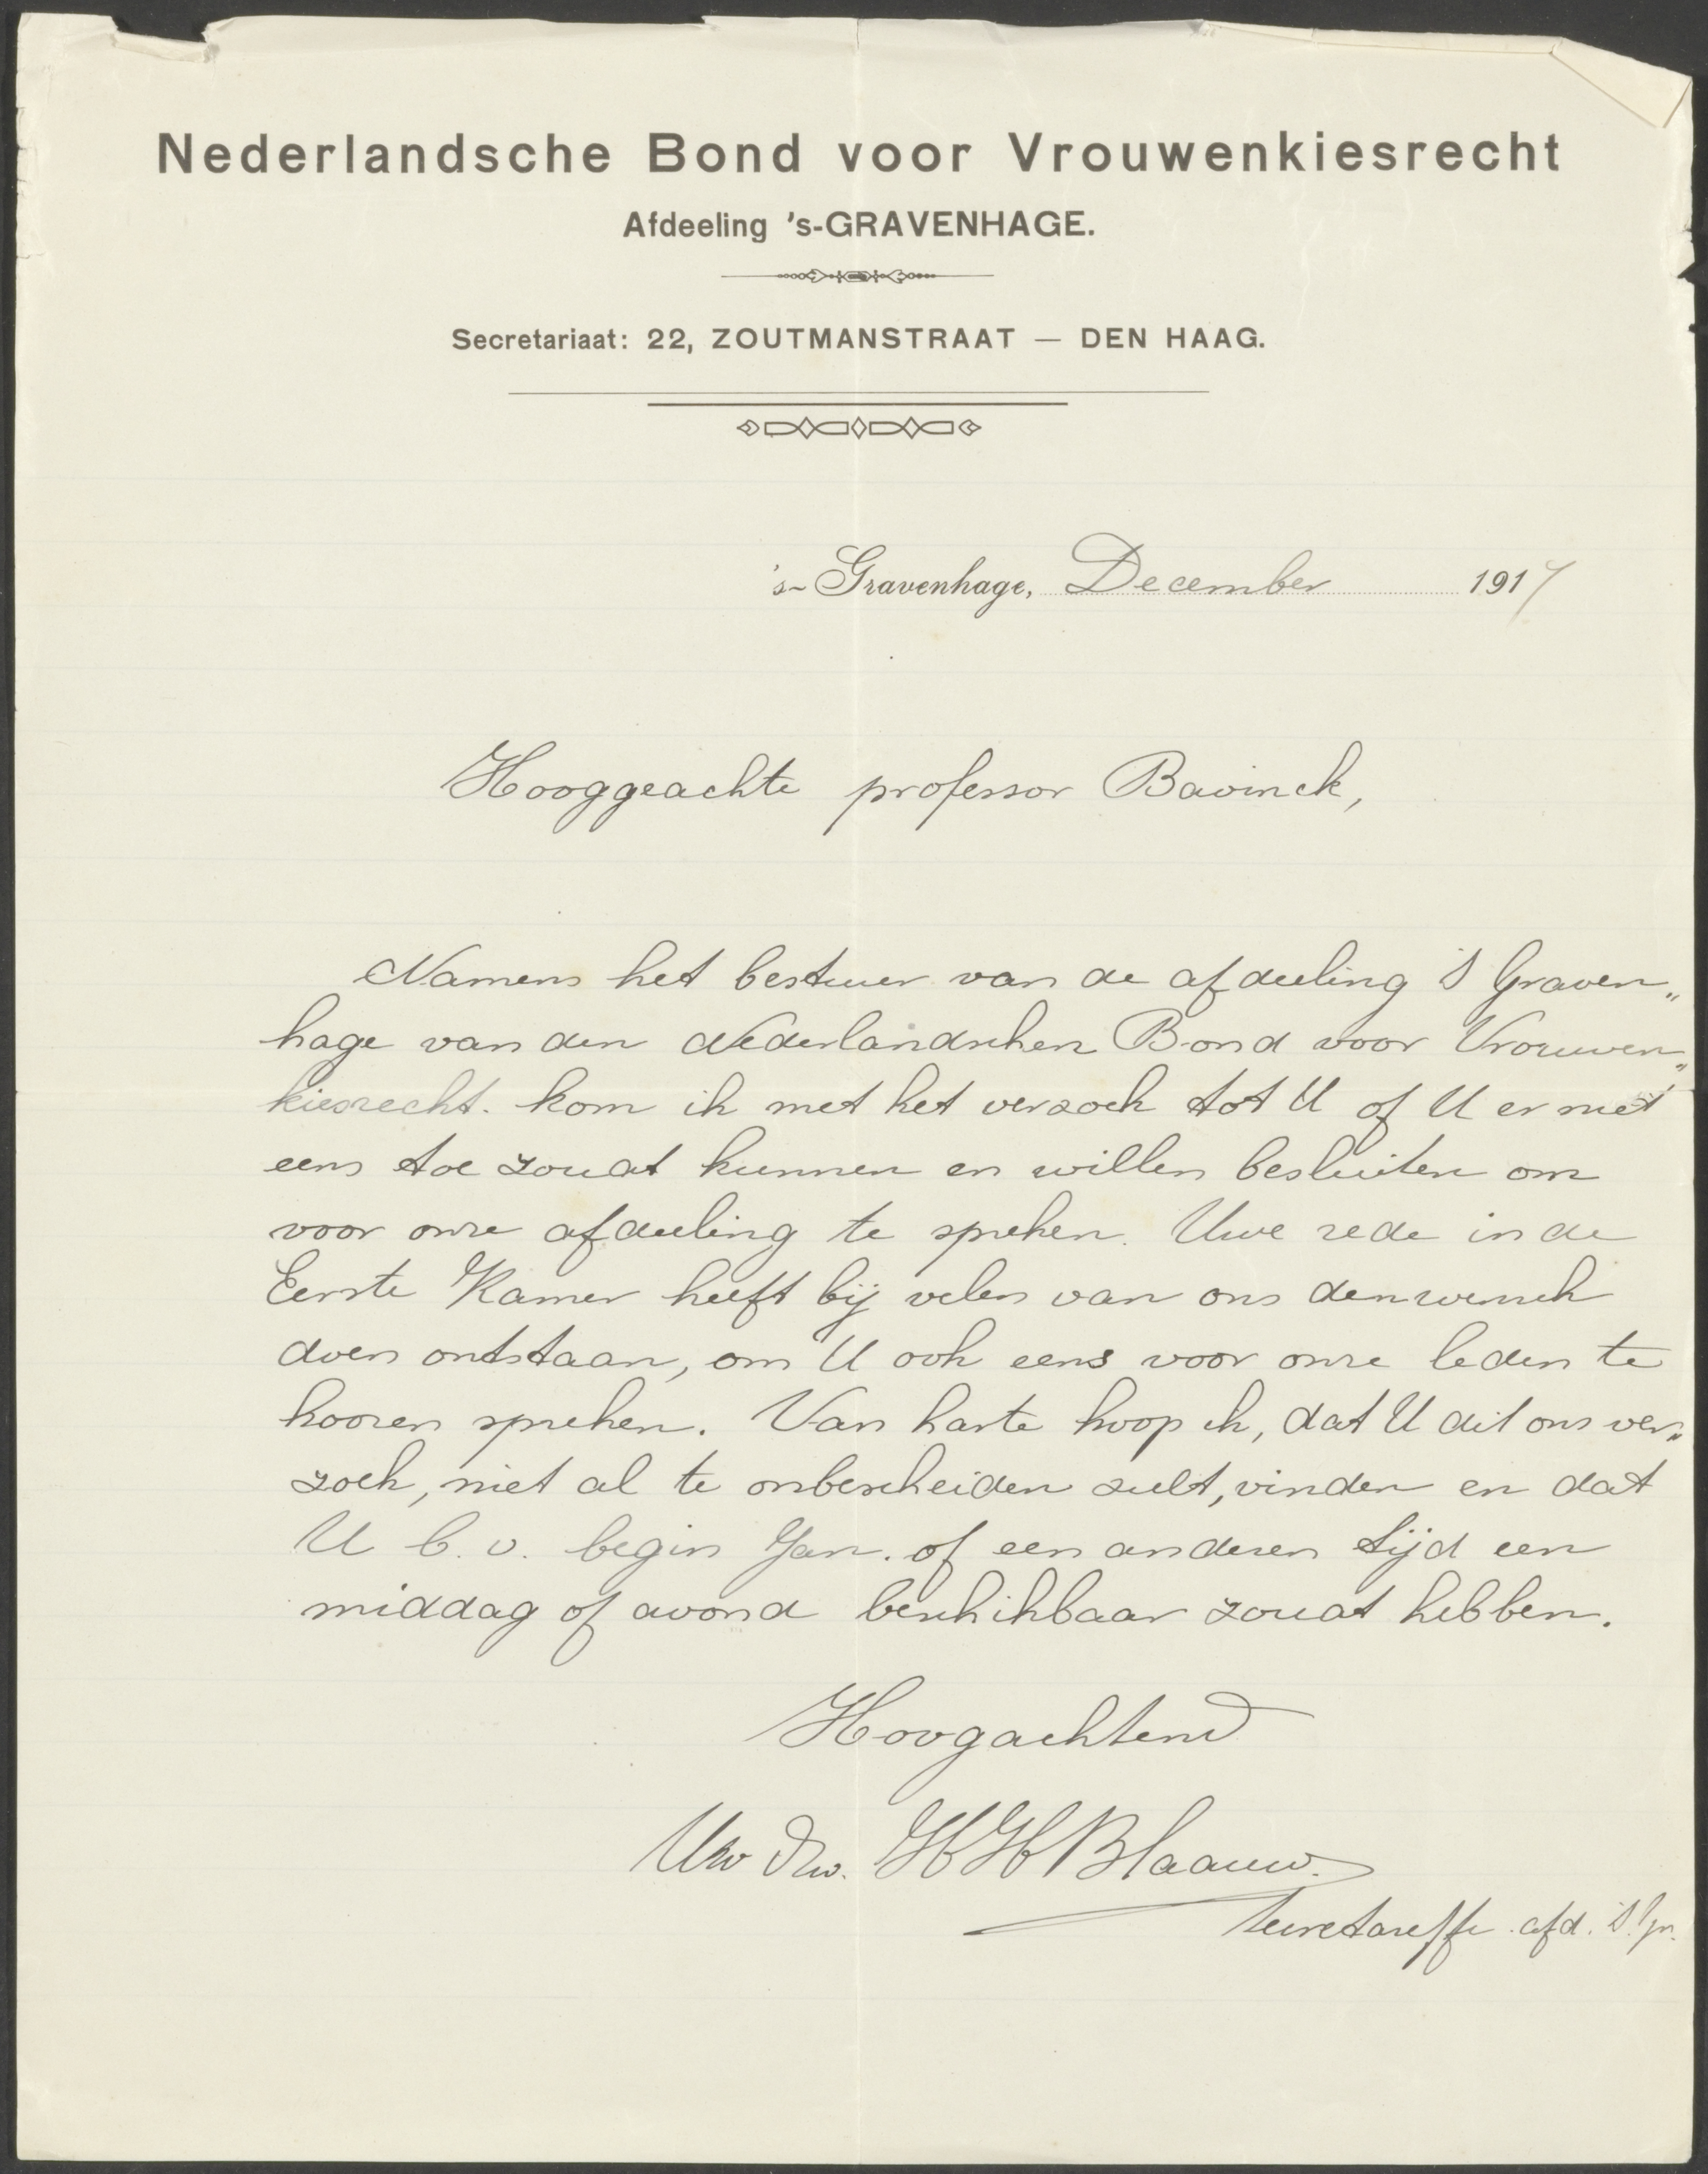 Nederlandsche Bond voor Vrouwenkiesrecht
Afdeeling 's-GRAVENHAGE.
Secretariaat: 22, ZOUTMANSTRAAT — DEN HAAG.
's-Gravenhage, December 1917
Hooggeachte professor Bavinck,
Namens het bestuur van de afdeeling 's Graven„
hage van den Nederlandschen Bond voor Vrouwen„
kiesrecht. kom ik met het verzoek tot U of U er niet
eens toe zoudt kunnen en willen besluiten om
voor onze afdeeling te spreken. Uwe rede in de
Eerste Kamer heeft bij velen van ons den wensch
doen ontstaan, om U ook eens voor onze leden te
hooren spreken. Van harte hoop ik, dat U dit ons ver„
zoek, niet al te onbescheiden zult, vinden en dat
U b.v. begin Jan. of een anderen tijd een
middag of avond beschikbaar zoudt hebben.
Hoogachtend
Uw Dw. HH Blaauw.
secretaresse afd. 's Gr.